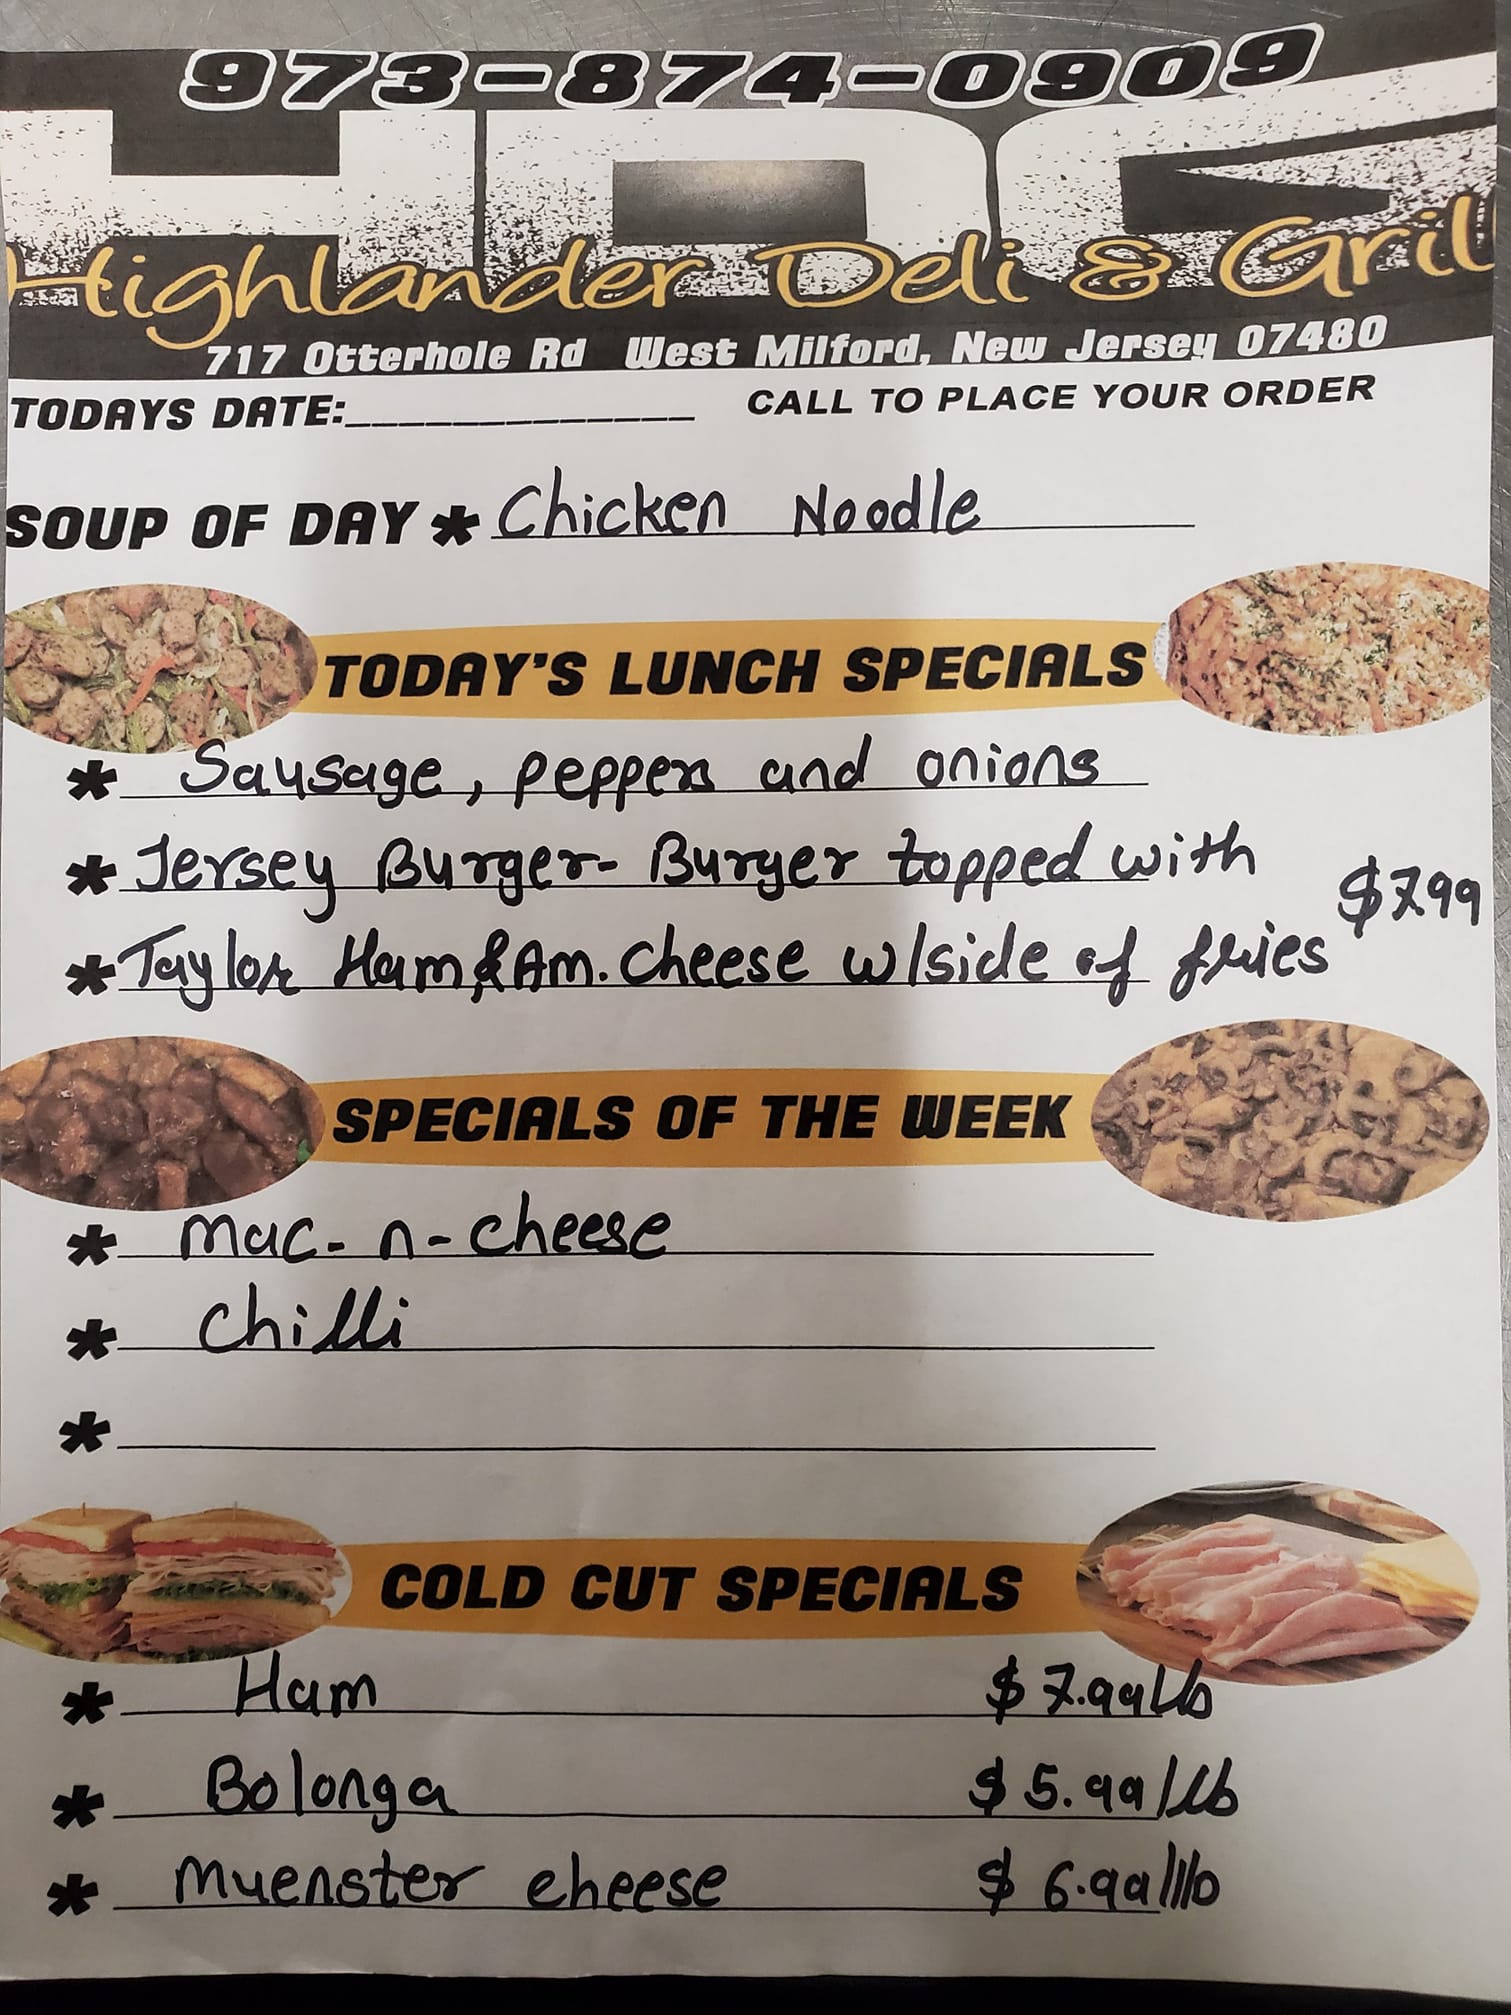 973-874-0909
HDG
Highlander Deli & Grill
717 Otterhole Rd West Milford, New Jersey 07480
TODAYS DATE:_____________ CALL TO PLACE YOUR ORDER
SOUP OF DAY * Chicken Noodle
TODAY'S LUNCH SPECIALS
* Sausage, peppers and onions
* Jersey Burger- Burger topped with
$7.99
* Taylor Ham & Am. cheese w/side of fries
SPECIALS OF THE WEEK
* mac-n-cheese
* chilli
*
COLD CUT SPECIALS
* Ham $7.99/lb
* Bolonga $5.99/lb
* muenster cheese $6.99/lb